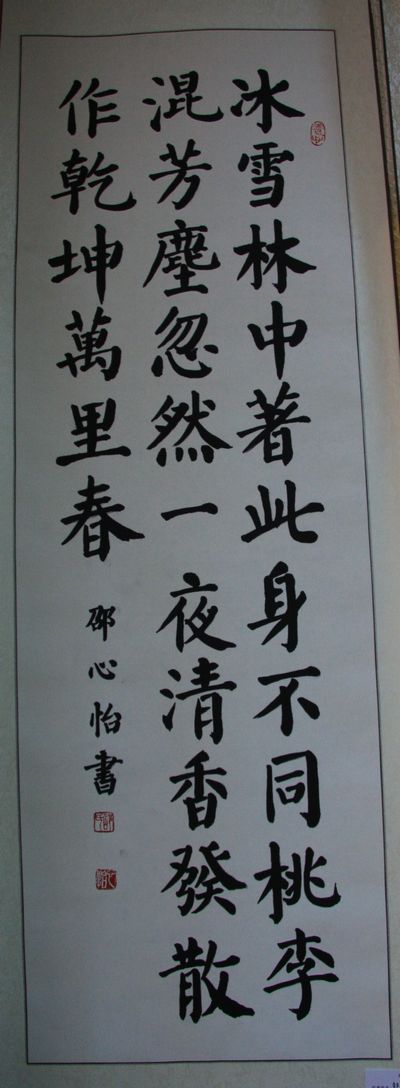 冰雪林中著此身不同桃李
混芳塵忽然一夜清香發散
作乾坤萬里春
邵心怡書